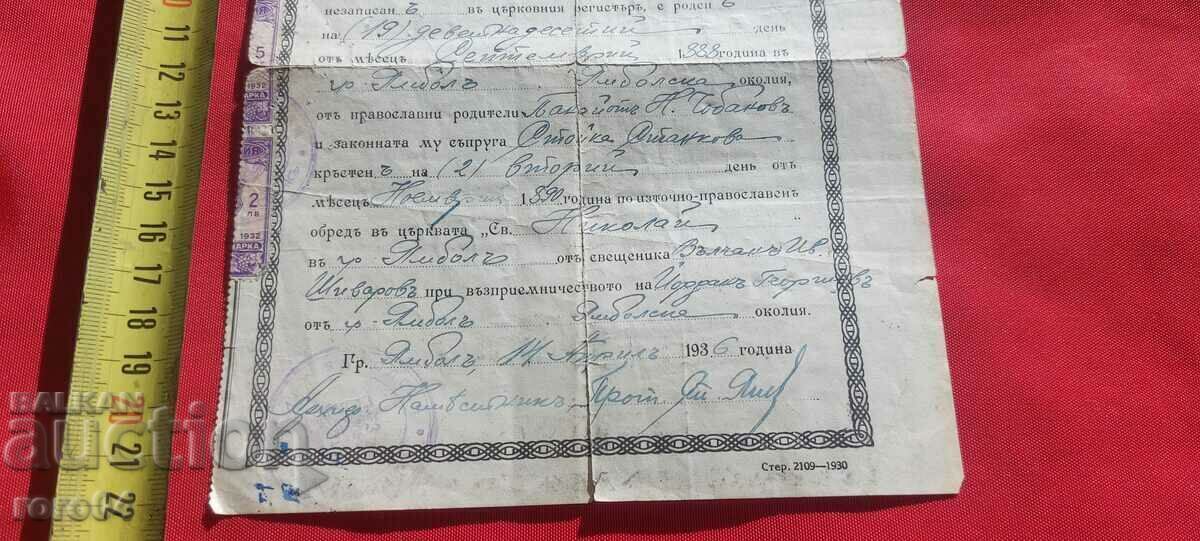 незаписан ъ въ църковния регистъръ, е роден ъ
на (19) деветнадесетий день
отъ мѣсецъ Септемврий 1888 година въ
гр. Ямболъ Ямболска околия,
отъ православни родители Панайотъ Н. Чобановъ
и законната му съпруга Стойка Станкова
кръстен ъ на (2) вторий день отъ
мѣсецъ Ноемврий 1890 година по източно-православенъ
обредъ въ църквата „Св. Николай“
въ гр. Ямболъ отъ свещеника Вълчанъ Ив.
Шиваровъ при възприемничеството на Йорданъ Георгиевъ
отъ гр. Ямболъ Ямболска околия.
Гр. Ямболъ, 14 Априлъ 1936 година
Намѣстникъ, Прот. Ст.
Стер. 2109—1930
5
1932
МАРКА
2
ЛВ
1932
МАРКА
11
12
13
14
15
16
17
18
19
20
21
22
BALKAN
auction